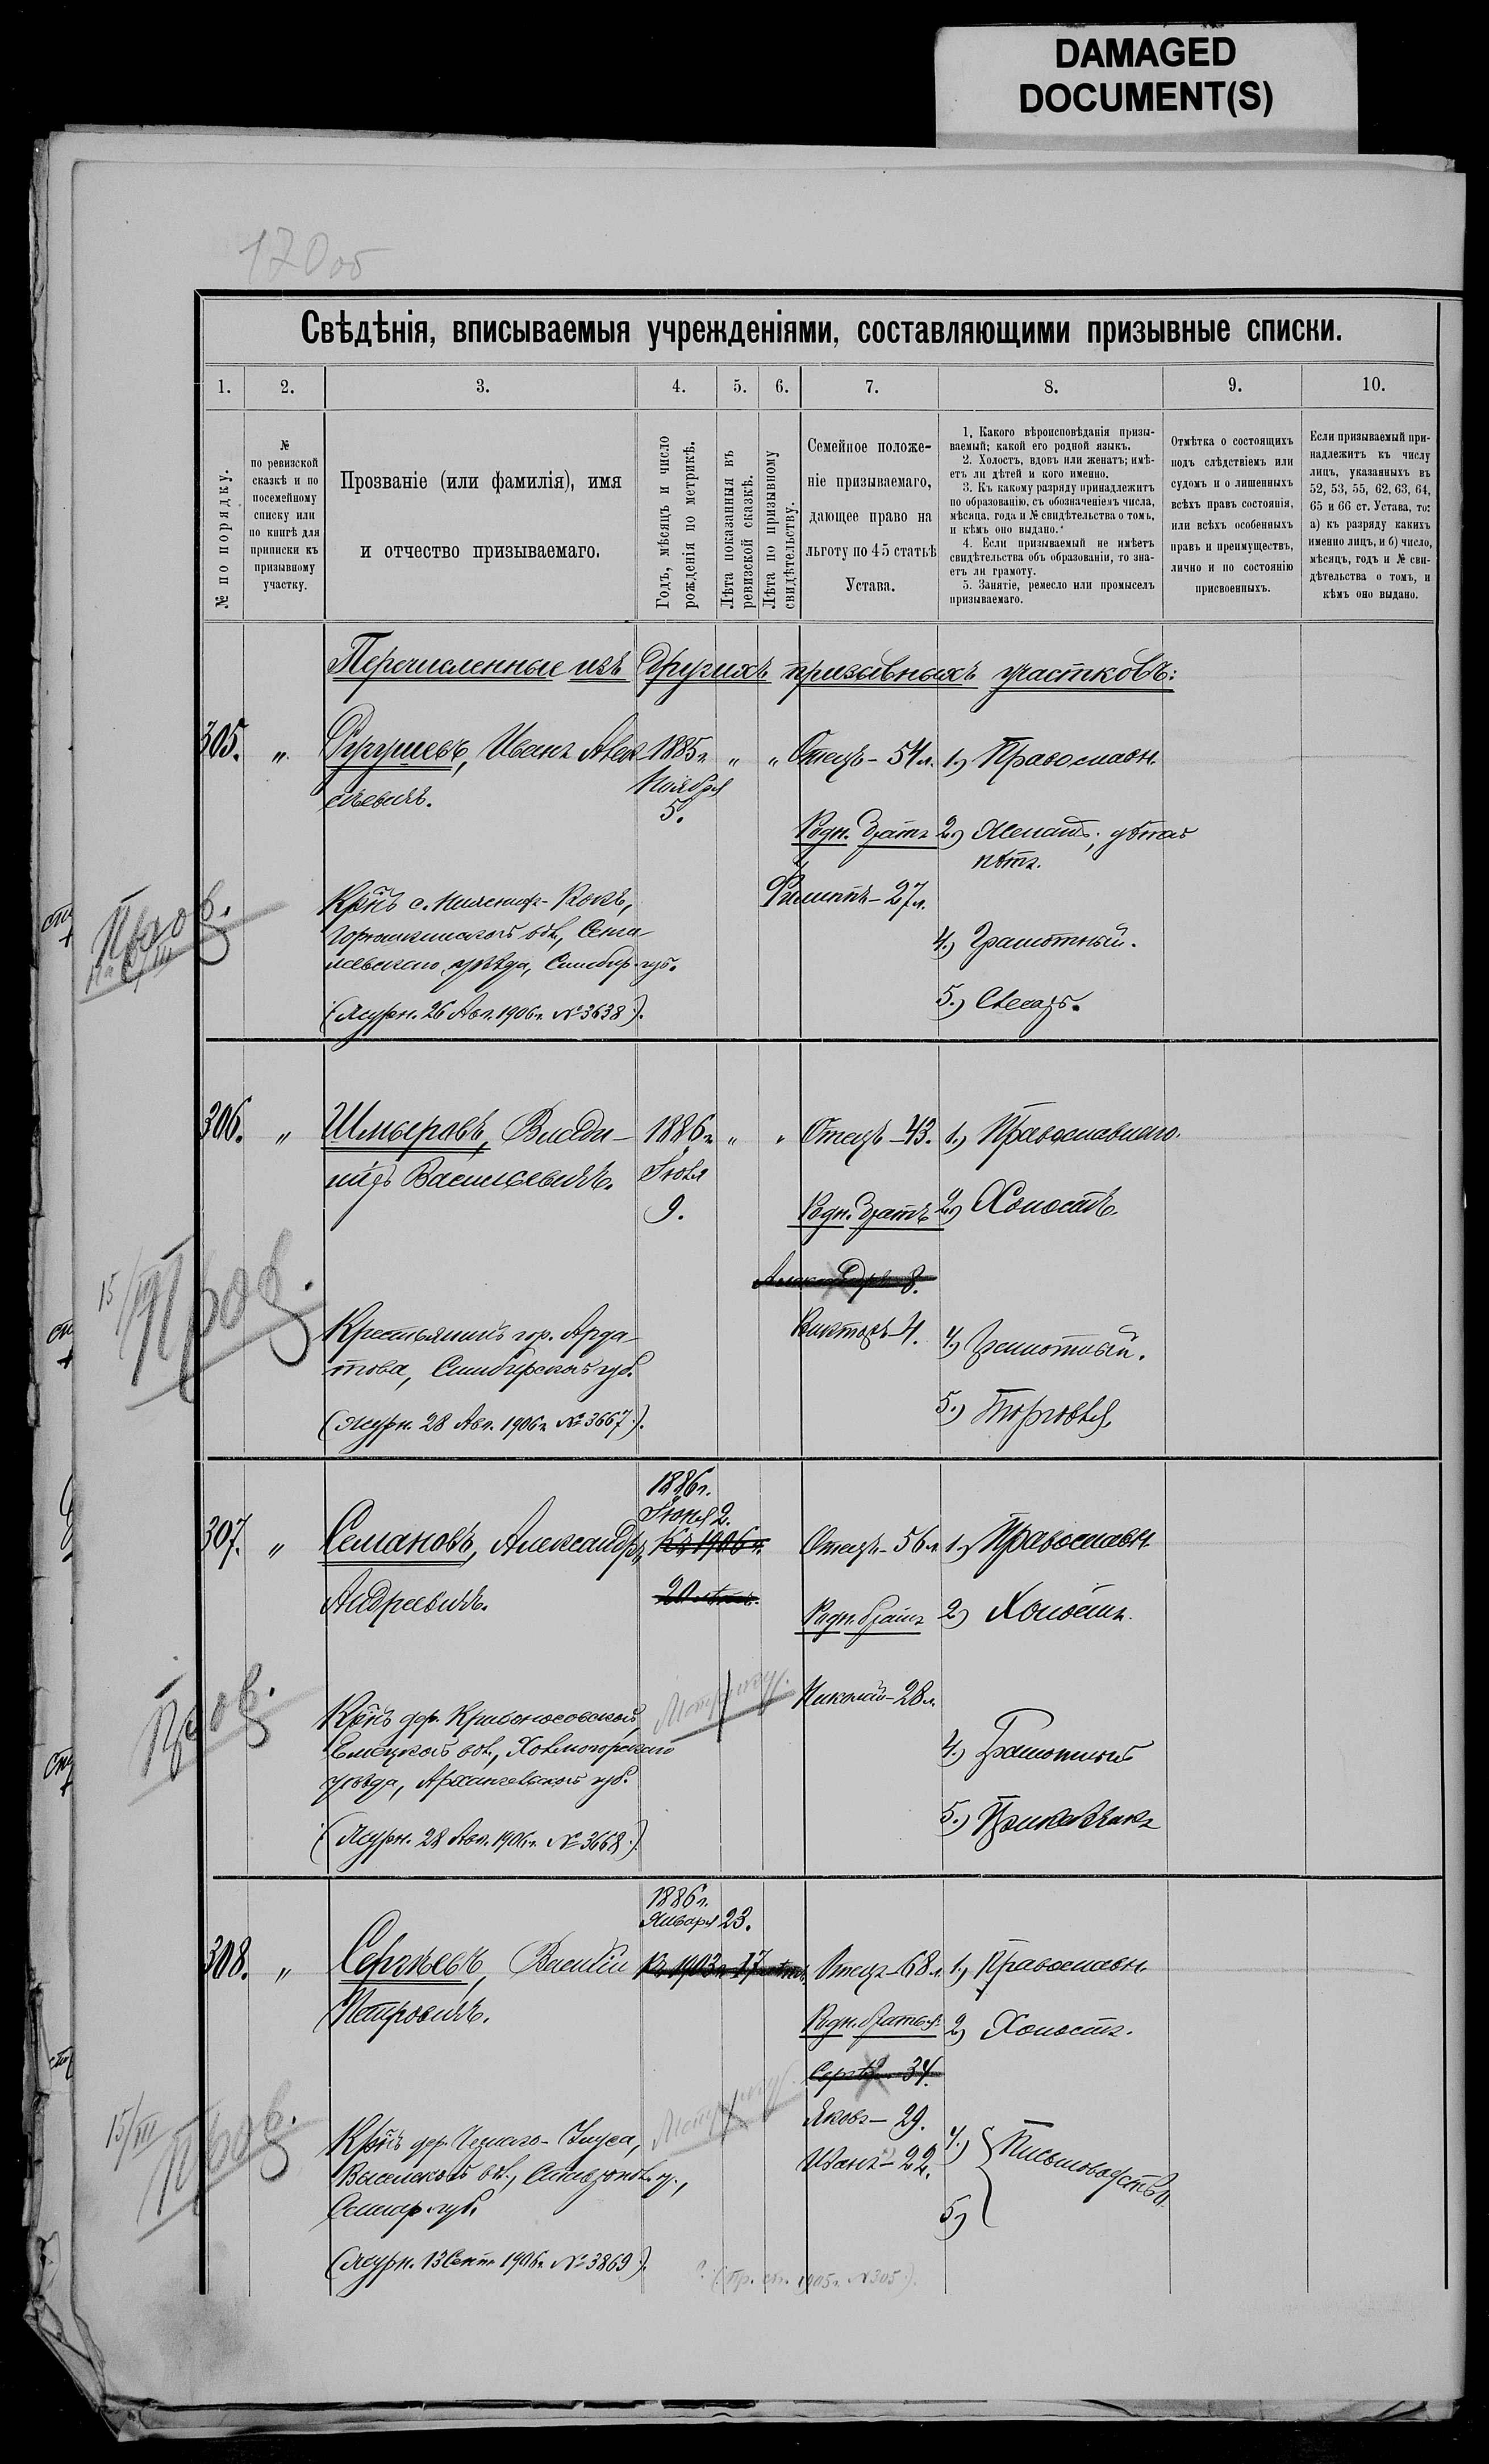 DAMAGED
DOCUMENT(S)
170об
Свѣдѣнія, вписываемыя учрежденіями, составляющими призывные списки.
1. 2. 3. 4. 5. 6. 7. 8. 9. 10.
№ по порядку.
№
по ревизской
сказкѣ и по
посемейному
списку или
по книгѣ для
приписки къ
призывному
участку.
Прозваніе (или фамилія), имя
и отчество призываемаго.
Годъ, мѣсяцъ и число
рожденія по метрикѣ.
Лѣта показанныя въ
ревизской сказкѣ.
Лѣта по призывному
свидѣтельству.
Семейное положе-
ніе призываемаго,
дающее право на
льготу по 45 статьѣ
Устава.
1. Какого вѣроисповѣданія призы-
ваемый; какой его родной языкъ.
2. Холостъ, вдовъ или женатъ; имѣ-
етъ ли дѣтей и кого именно.
3. Къ какому разряду принадлежитъ
по образованію, съ обозначеніемъ числа,
мѣсяца, года и № свидѣтельства о томъ,
и кѣмъ оно выдано.
4. Если призываемый не имѣетъ
свидѣтельства объ образованіи, то зна-
етъ ли грамоту.
5. Занятіе, ремесло или промыселъ
призываемаго.
Отмѣтка о состоящихъ
подъ слѣдствіемъ или
судомъ и о лишенныхъ
всѣхъ правъ состоянія,
или всѣхъ особенныхъ
правъ и преимуществъ,
лично и по состоянію
присвоенныхъ.
Если призываемый при-
надлежитъ къ числу
лицъ, указанныхъ въ
52, 53, 55, 62, 63, 64,
65 и 66 ст. Устава, то:
а) къ разряду какихъ
именно лицъ, и б) число,
мѣсяцъ, годъ и № сви-
дѣтельства о томъ, и
кѣмъ оно выдано.
Перечисленные изъ другихъ призывныхъ участковъ:
305. " Иванъ Алек
сѣевичъ.
1885г. " "
Ноября
5.
Отецъ - 54 л.
Родн. братъ
Филиппъ - 27 л.
1.) Православн.
2.) Женатъ; дѣтей
нѣтъ.
4.) Грамотный.
5.) Слесарь.
Крнъ с.
уѣзда, Симбир. губ.
(Журн. 26 Авг. 1906г. № 3638).
Пров.
306. " Шмыровъ, Влади-
міръ Васильевичъ.
1886г. " "
Іюля
9.
Отецъ - 43.
Родн. братъ
Александръ 8.
Викторъ - 4.
1.) Православнаго.
2.) Холостъ.
4.) Грамотный.
5.) Торговля
Крестьянинъ гор. Арда-
това, Симбирской губ.
(Журн. 28 Авг. 1906г. № 3667).
15/III
Пров.
307. " Семановъ, Александръ
Андреевичъ.
1886г.
Іюня 2.
Къ 1906 г.
20 лѣтъ.
Отецъ - 56 л.
Родн. братъ
Николай - 28 л.
1.) Православн.
2.) Холостъ.
4.) Грамотный
5.) Прикащикъ
Крнъ дер. Кривоносовской
Емецкой вол., Холмогорскаго
уѣзда, Архангельской губ.
(Журн. 28 Авг. 1906г. № 3668).
Пров.
308. " Сергѣевъ, Василій
Петровичъ.
1886г.
Января 23.
Къ 1903г. 17 лѣтъ.
Отецъ - 68 л.
Родн. братья:
Сергѣй 34.
Яковъ - 29.
Иванъ - 22.
1.) Православн.
2.) Холостъ.
4.)
5.) Письмоводство.
Крнъ дер.
вол., Ставропол. у.,
Самар. губ.
(Журн. 13 Сент. 1906г. № 3869).
15/III
Пров.
(Пр. сп. 1905г. № 305).